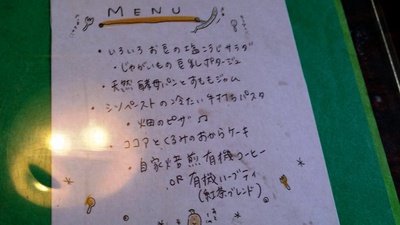 MENU
・いろいろお豆の塩こうじサラダ
・じゃがいもの豆乳ポタージュ
・天然酵母パンとすももジャム
・シソペーストの冷たい手打ちパスタ
・畑のピザ♫
・ココアとくるみのおからケーキ
・自家焙煎有機コーヒー
OR 有機ハーブティ
(紅茶ブレンド)